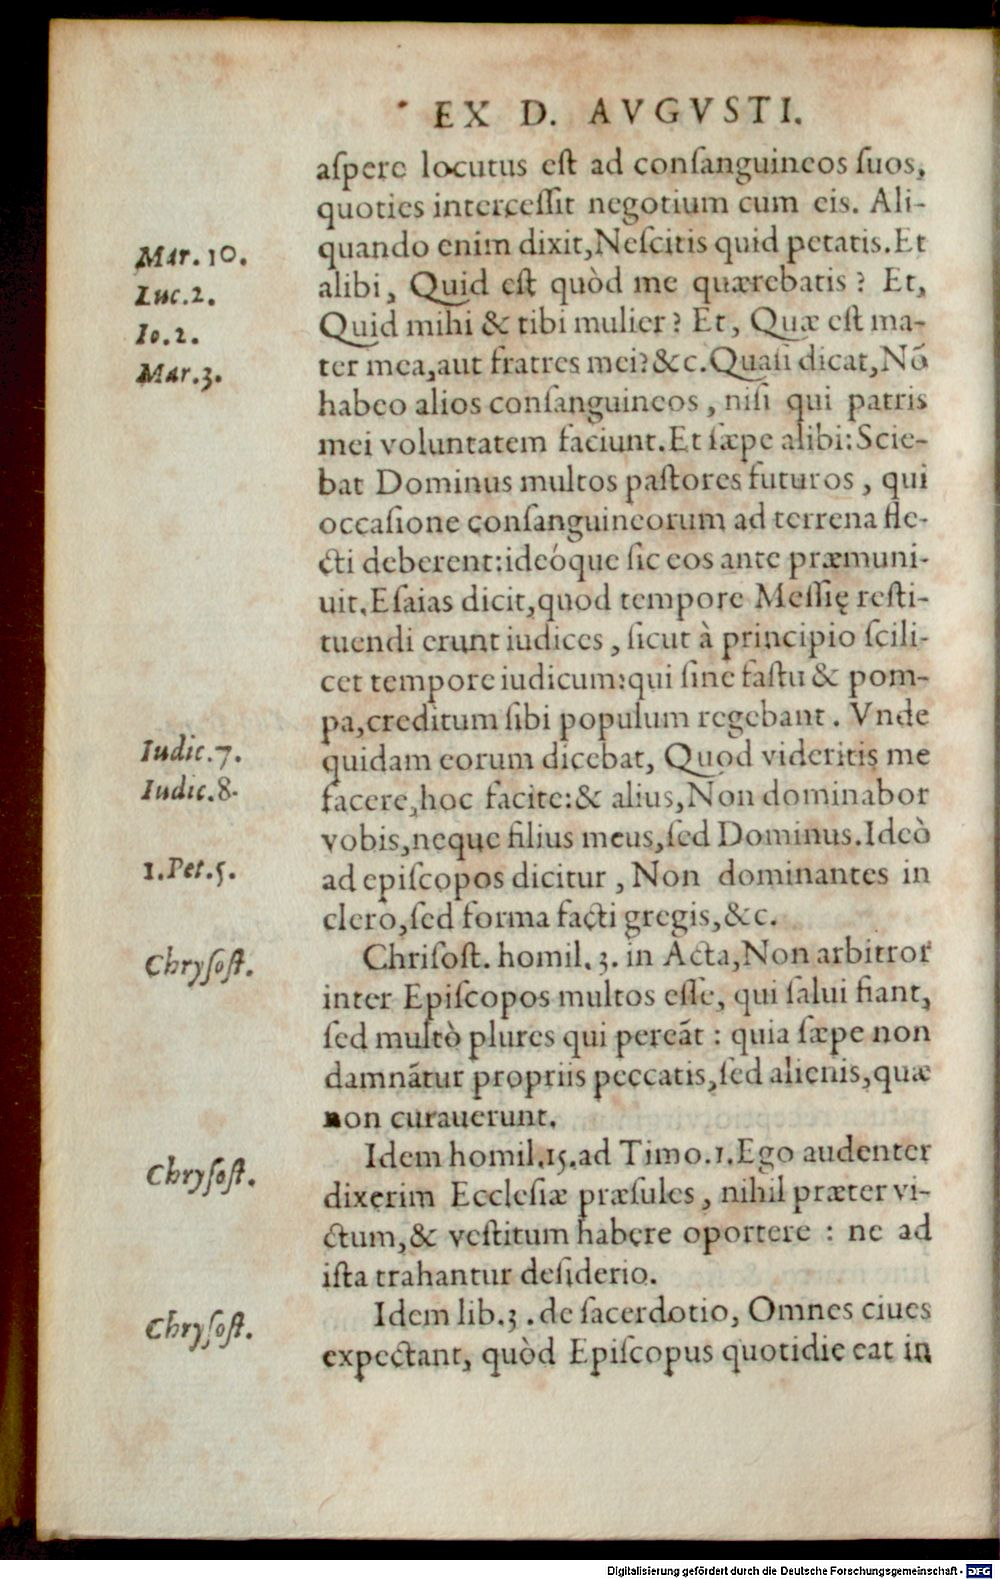 EX D. AVGVSTI.
aſpere locutus eſt ad conſanguineos ſuos,
quoties interceſſit negotium cum eis. Ali-
quando enim dixit, Neſcitis quid petatis. Et
Mar. 10.
alibi, Quid eſt quòd me quærebatis? Et,
Luc. 2.
Quid mihi & tibi mulier? Et, Quæ eſt ma-
Io. 2.
ter mea, aut fratres mei? &c. Quaſi dicat, Nõ
Mar. 3.
habeo alios conſanguineos, niſi qui patris
mei voluntatem faciunt. Et ſæpe alibi: Scie-
bat Dominus multos paſtores futuros, qui
occaſione conſanguineorum ad terrena fle-
cti deberent: ideóque ſic eos ante præmuni-
uit. Eſaias dicit, quod tempore Meſſię reſti-
tuendi erunt iudices, ſicut à principio ſcili-
cet tempore iudicum: qui ſine faſtu & pom-
pa, creditum ſibi populum regebant. Vnde
quidam eorum dicebat, Quod videritis me
Iudic. 7.
facere, hoc facite: & alius, Non dominabor
Iudic. 8.
vobis, neque filius meus, ſed Dominus. Ideò
ad epiſcopos dicitur, Non dominantes in
1. Pet. 5.
clero, ſed forma facti gregis, &c.
Chriſoſt. homil. 3. in Acta, Non arbitror
Chryſoſt.
inter Epiſcopos multos eſſe, qui ſalui fiant,
ſed multò plures qui pereãt: quia ſæpe non
damnãtur propriis peccatis, ſed alienis, quæ
non curauerunt.
Idem homil. 15. ad Timo. 1. Ego audenter
Chryſoſt.
dixerim Eccleſiæ præſules, nihil præter vi-
ctum, & veſtitum habere oportere: ne ad
iſta trahantur deſiderio.
Idem lib. 3. de ſacerdotio, Omnes ciues
Chryſoſt.
expectant, quòd Epiſcopus quotidie eat in
Digitalisierung gefördert durch die Deutsche Forschungsgemeinschaft - DFG